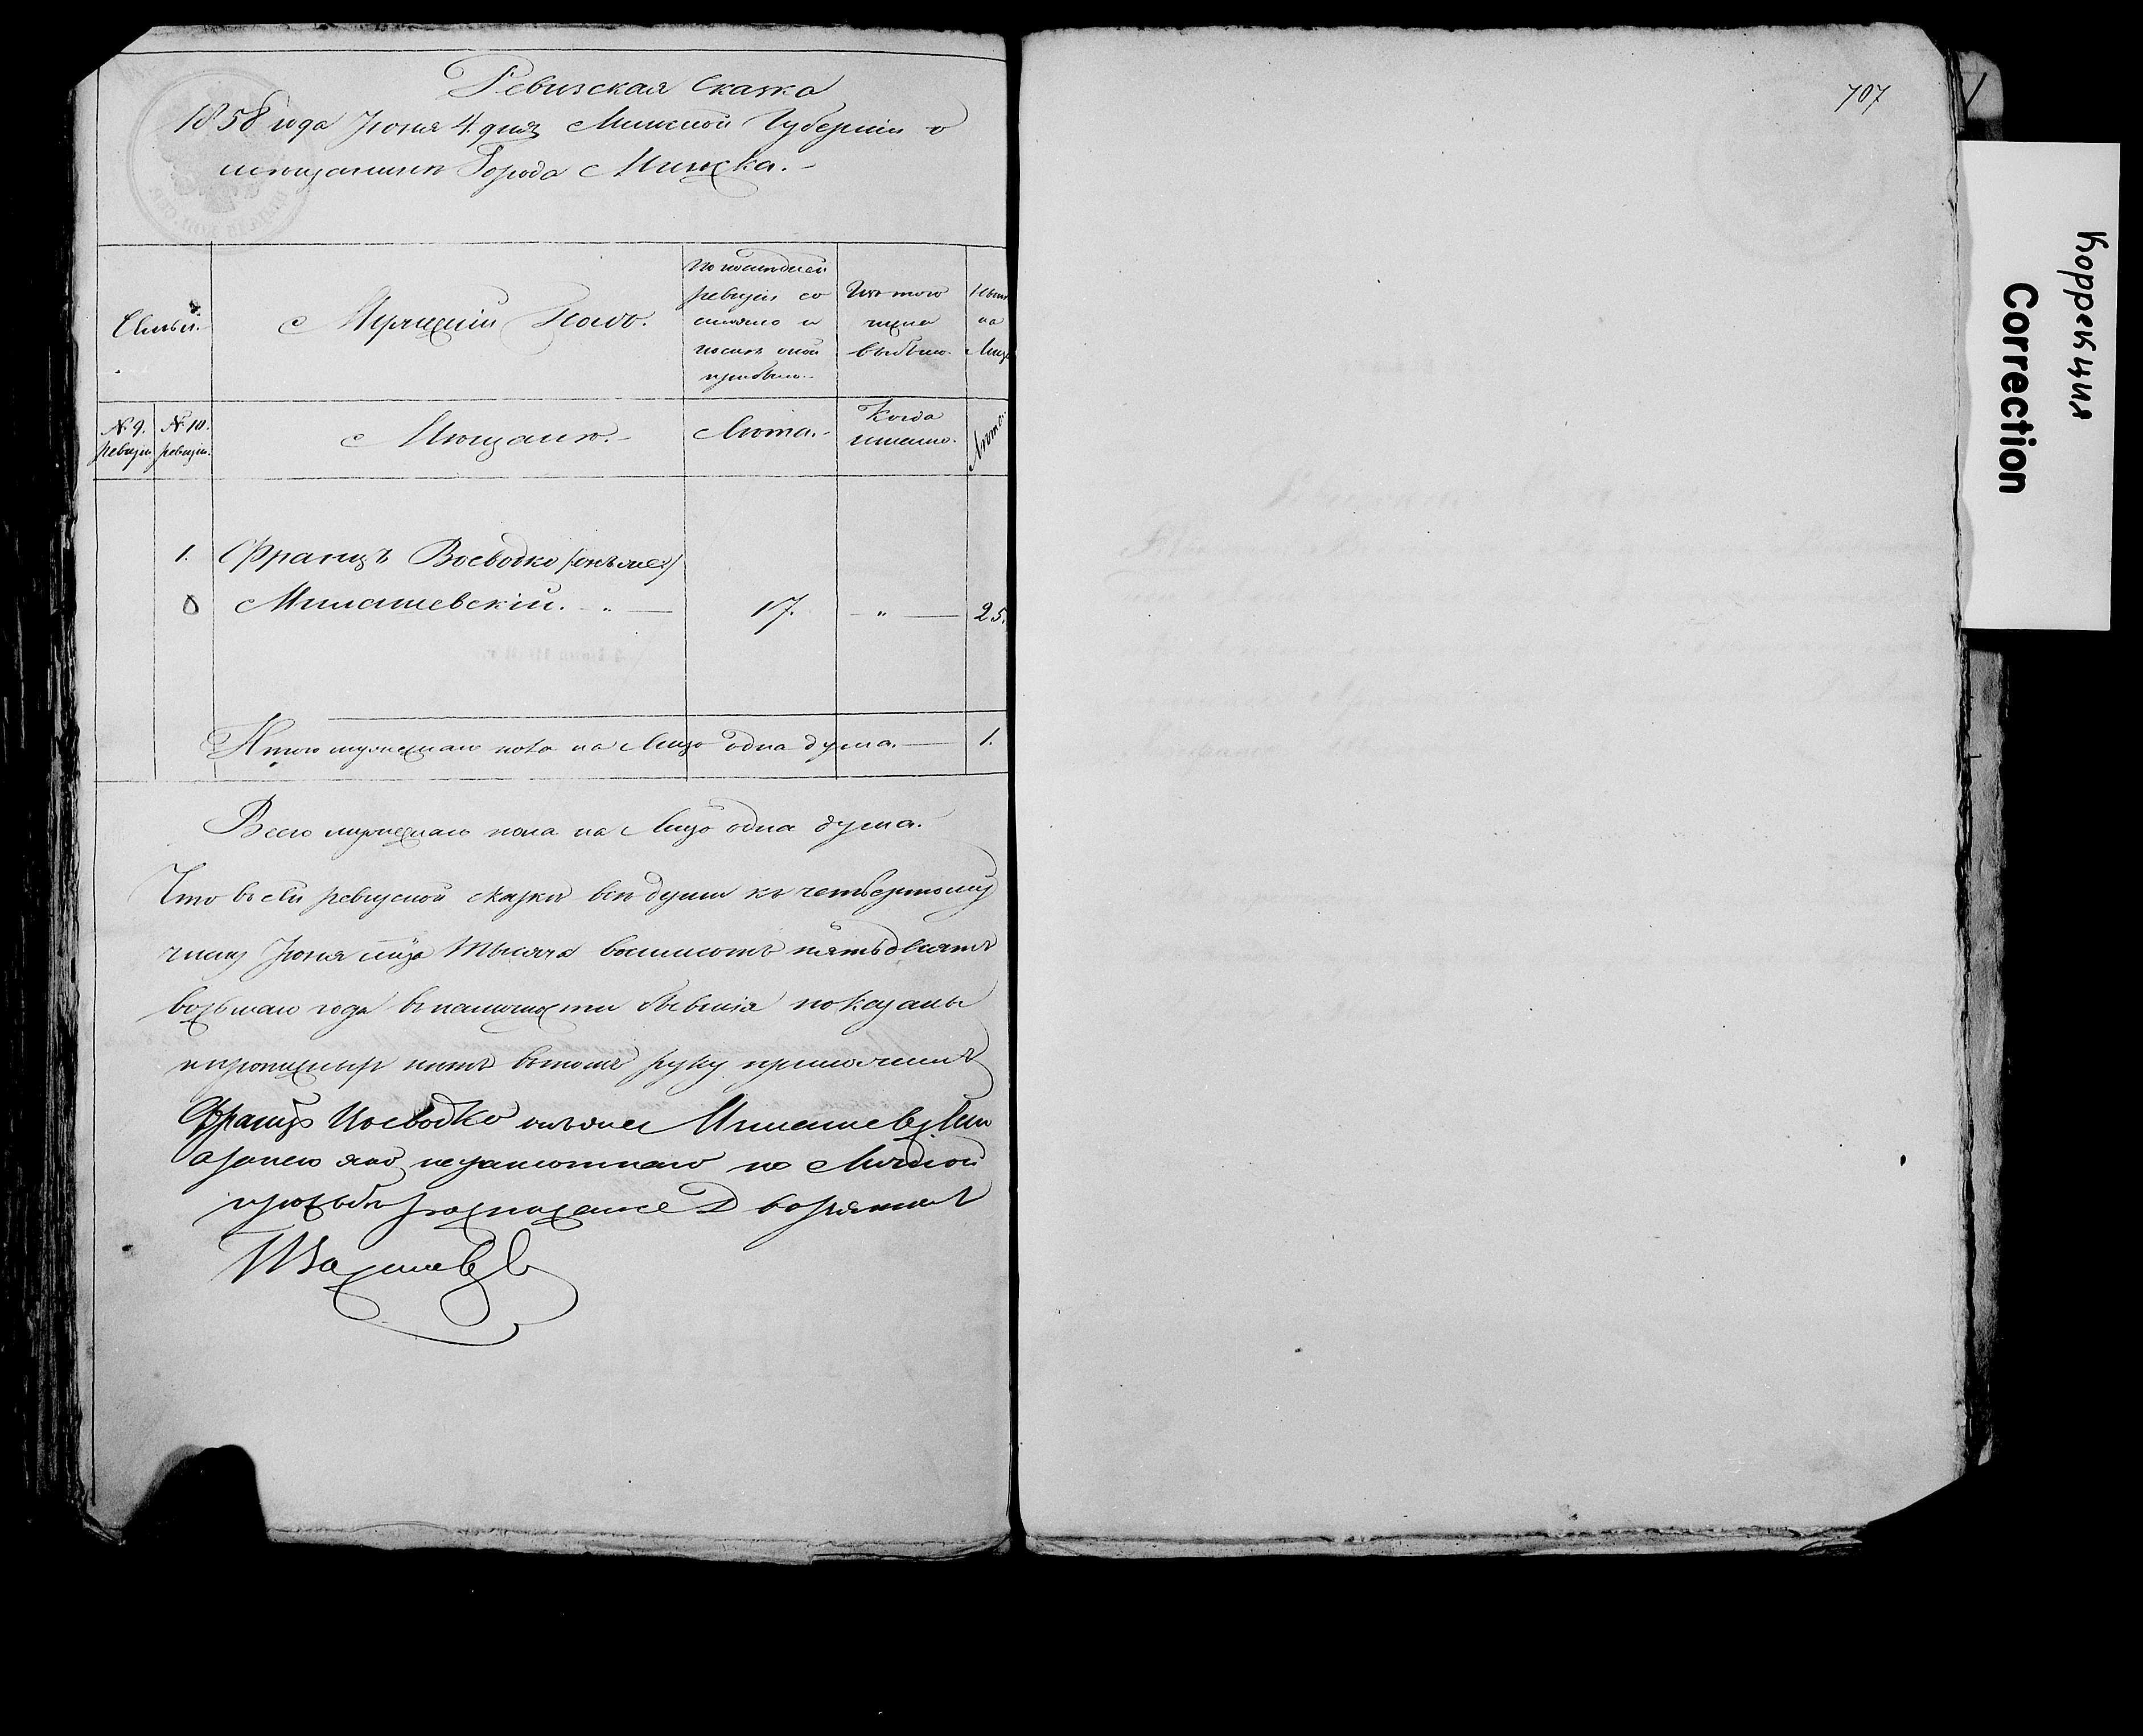 Ревизская Сказка
1858 года Іюня 4. дня Минской Губерніи о
мѣщанинѣ Города Минска.
Семьи.
Мужескій Полъ.
По послѣдней
ревизіи со
стояло и
послѣ оной
прибыло.
Изъ того
числа
выбыло.
Нынѣ
на
Лицо
№ 9. ревизіи
№ 10. ревизіи.
Мѣщане.
Лѣта.
Когда
именно.
Лѣта.
1. Францъ Воеводко /онъ же/
Милашевскій. - " — 17. — " — 25.
Итого мужескаго пола на Лицо одна душа. — 1.
Всего мужескаго пола на Лицо одна душа.
Что въ сей ревизской сказкѣ всѣ души къ четвертому
числу Іюня мца Тысяча восемсотъ пятьдесятъ
восьмаго года въ наличности бывшія показаны
и пропускныхъ нѣтъ въ томъ руку приложилъ
Францъ Воеводко онъ же Милашевскій
а за него яко неграмотнаго по Личной
просьбѣ росписался Дворянинъ
707
Коррекция
Correction